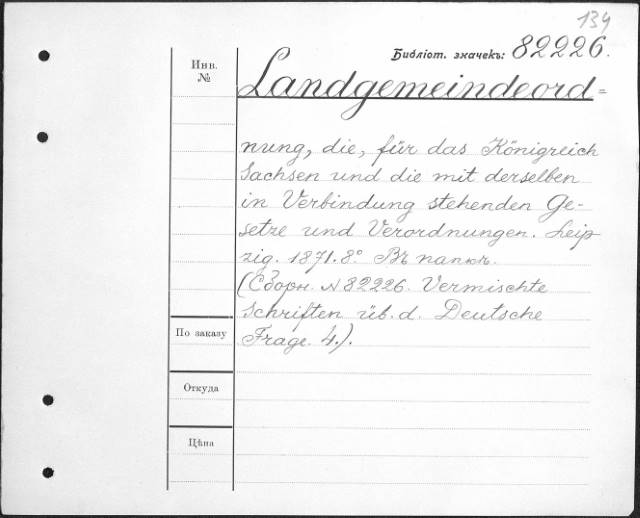 134
Библіот. значекъ: 82226.
Инв.
№
Landgemeindeord=
nung, die, für das Königreich
Sachsen und die mit derselben
in Verbindung stehenden Ge-
setze und Verordnungen. Leip
zig. 1871. 8°. Въ папкѣ.
(Сборн. N 82226. Vermischte
Schriften üb. d. Deutsche
Frage. 4.).
По заказу
Откуда
Цѣна